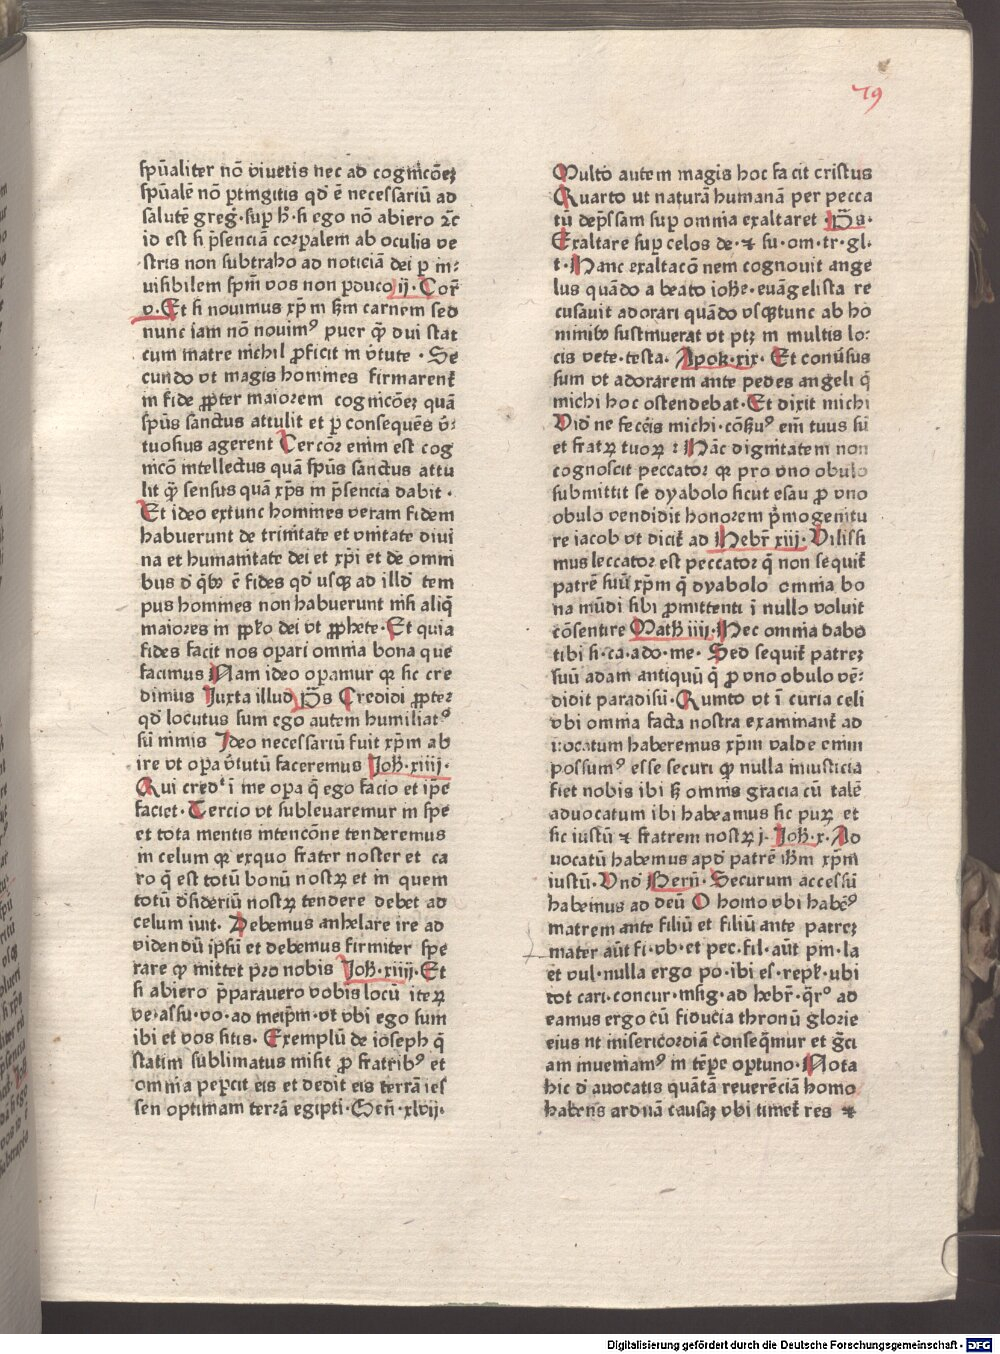 79
spūaliter nō viuetis nec ad cognicōeꝫ
spūalē nō ꝑtingitis qď ē necessariū ad
salutē greg̉·suꝑ ħ·si ego nō abiero ⁊c̄
id est si p̄senciā corꝑalem ab oculis ve
stris non subtraho ad noticiā dei ꝑ in⸗
uisibilem spm̄ vos non ꝑduco ij·Cor̄
v·Et si nouimus xp̄m ẜm carnem sed
nunc iam nō nouimꝰ puer q̄ diu stat
cum matre nichil ꝓficit in v̄tute·Se
cundo vt magis homines firmarent̄
in fide ꝓpter maiorem cognicōeꝫ quā
spūs sanctus attulit et ꝑ consequēs v̄⸗
tuosius agerent Cercōr enim est cog
nicō intellectus quā spūs sanctus attu
lit q̄ sensus quā xp̄s in p̄sencia dabit·
Et ideo extunc homines veram fidem
habuerunt de trinitate et vnitate diui
na et humanitate dei et xp̄i et de omni
bus ď q̄bꝰ ē fides qď vsqꝫ ad illď tem
pus homines non habuerunt nisi aliq̄
maiores in ppl̄o dei vt ꝓphete·Et quia
fides facit nos oꝑari omnia bona que
facimus Nam ideo oꝑamur qꝛ sic cre
dimus Juxta illud P̄s Credidi ꝓpter
qď locutus sum ego autem humiliatꝰ
sū nimis Ideo necessariū fuit xp̄m ab
ire vt oꝑa v̄tutū faceremus Joħ·xiiij·
Qui credᵗ ī me oꝑa q̄ ego facio et ip̄e
faciet·Tercio vt subleuaremur in spe
et tota mentis intencōne tenderemus
in celum qꝛ exquo frater noster et ca
ro q̄ est totū bonū nostꝝ et in quem
totū ďsideriū nostꝝ tendere debet ad
celum iuit·Debemus anhelare ire ad
videndū ipsū et debemus firmiter spe
rare qꝫ mittet ꝓ nobis Joħ·xiiij·Et
si abiero p̄parauero vobis locū iteꝝ
ve·assu·vo·ad meip̄m·vt vbi ego sum
ibi et vos sitis·Exemplū de ioseph q̄
statim sublimatus misit ꝓ fratribꝰ et
omnia peꝑcit eis et dedit eis terrā ies
sen optimam terrā egipti·Gen̄·xlvij·
Multo autem magis hoc facit cristus
Quarto vt naturā humanā per pecca
tū dep̄ssam suꝑ omnia exaltaret·P̄s·
Exaltare suꝑ celos de·⁊ su·om·tr·gl·
t·Hanc exaltacōnem cognouit ange
lus quādo a beato ioħe·euāgelista re
cusauit adorari quādo vsqꝫtunc ab ho
minibꝰ sustinuerat vt ptꝫ in multis lo⸗
cis vete·testa·Apok·xix·Et conūsus
sum vt adorarem ante pedes angeli q̄
michi hoc ostendebat·Et dixit michi
Vidē ne feceis michi·cōẜuꝰ em̄ tuus sū
et fratꝝ tuoꝝ:Hāc dignitatem non
cognoscit peccator qꝛ pro vno obulo
submittit se dyabolo sicut esau ꝓ vno
obulo vendidit honorem p̄mogenitu
re iacob vt dicit̄ ad Hebr̄ xiij·Vilissi
mus leccator est peccator q̄ non sequit̄
patrē suū xp̄m q̄ dyabolo omnia bo
na mūdi sibi ꝓmittenti ī nullo voluit
cōsentire Math̄ iiij·Hec omnia dabo
tibi si·ca·ado·me·Sed sequit̄ patreꝫ
suū adam antiquū q̄ ꝓ vno obulo vē⸗
didit paradisū·Quinto vt ī curia celi
vbi omnia facta nostra examinant̄ ad
uocatum haberemus xp̄m valde enim
possumꝰ esse securi qꝫ nulla iniusticia
fiet nobis ibi ẜꝫ omnis gracia cū talē
aduocatum ibi habeamus sic puꝝ et
sic iustū ⁊ fratrem nostꝝ j·Joħ·x·Ad
uocatū habemus apď patrē iħm xp̄m
iustū·Vnď Bern̄·Securum accessū
habemus ad deū O homo vbi habēꝰ
matrem ante filiū et filiū ante patreꝫ
mater aūt fi·vb·et pec·fil·aūt pm·la
et vul·nulla ergo po·ibi es·repl̄·vbi
tot cari·concur·insig·ad hebr̄·q̄rꝰ ad
eamus ergo cū fiducia thronū glorie
eius ut misericordiā conseq̄mur et gr̄ci
am inueniamꝰ in tēpe oꝑtuno·Nota
hic ď auocatis quātā reuerēciā homo
habens arduā causaꝫ vbi timet̄ res ⁊
Digitalisierung gefördert durch die Deutsche Forschungsgemeinschaft · DFG